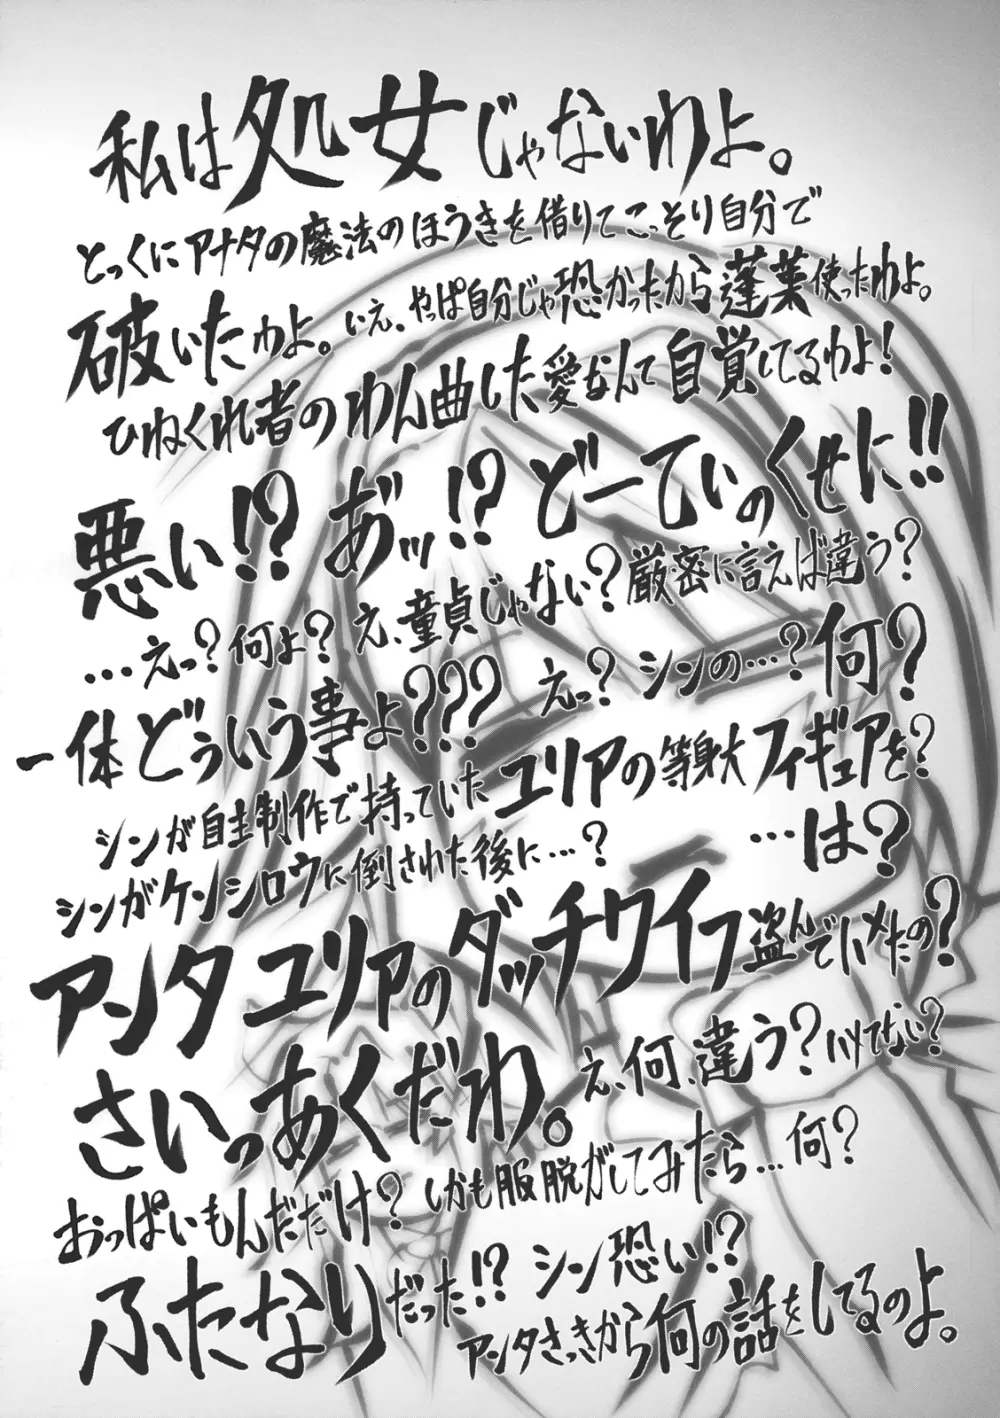 私は処女じゃないわよ。
とっくにアナタの魔法のほうきを借りてこっそり自分で
破いたわよ。いえ、やっぱ自分じゃ恐かったから蓬莱使ったわよ。
ひねくれ者のわん曲した愛なんて自覚してるわよ！
悪い！？あ゛ッ！？どーてぃのくせに！！
…えっ？何ょ？え、童貞じゃない？厳密に言えば違う？
一体どういう事よ？？？えっ？シンの…？何？
シンが自主制作で持っていたユリアの等身大フィギュアを？
シンがケンシロウに倒された後に…？…は？
アンタユリアのダッチワイフ盗んでハメたの？
さいっあくだわ。え、何、違う？ハメてない？
おっぱいもんだだけ？しかも服脱がしてみたら…何？
ふたなりだった！？シン恐い！？
アンタさっきから何の話をしてるのよ。